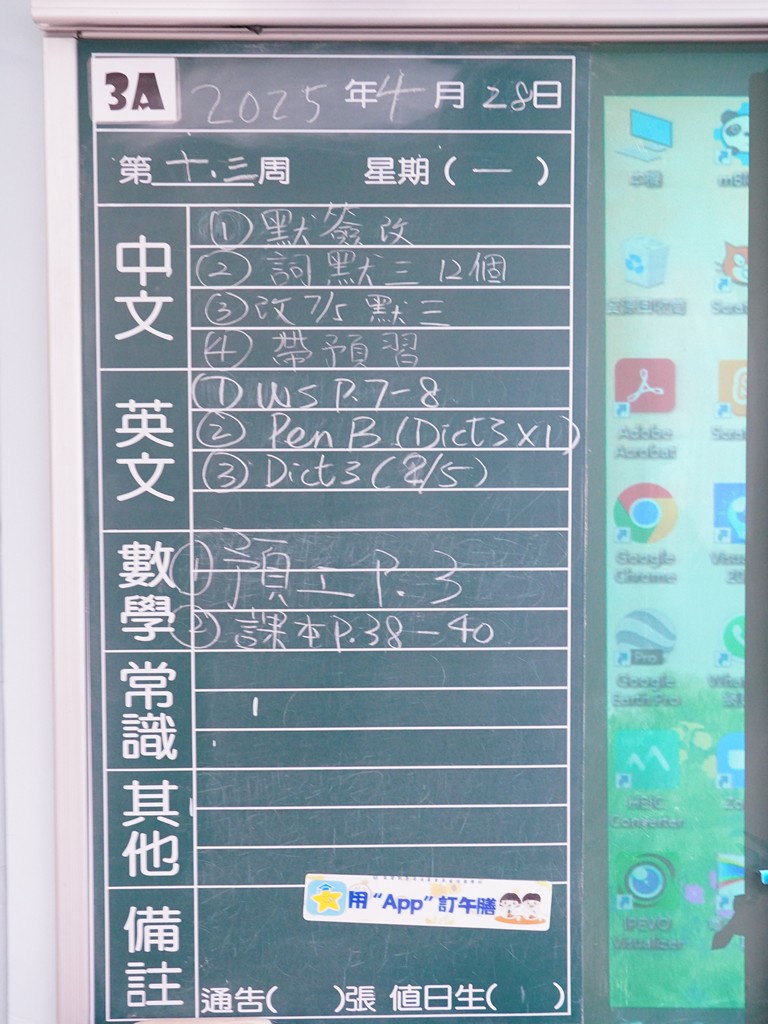 3A 2025年4月28日
第十.三周 星期(一)
中文
① 默簽改
② 詞默三 12個
③ 改7/5 默三
④ 帶預習
英文
① WS P.7-8
② Pen B (Dict3x1)
③ Dict 3 (2/5)
數學
① 預工 P.3
② 課本P.38-40
常識
其他
備註
用“App”訂午膳
通告( )張 值日生( )
本機
Adobe Acrobat
Google Chrome
Google Earth Pro
HEIC Converter
IPEVO Visualizer